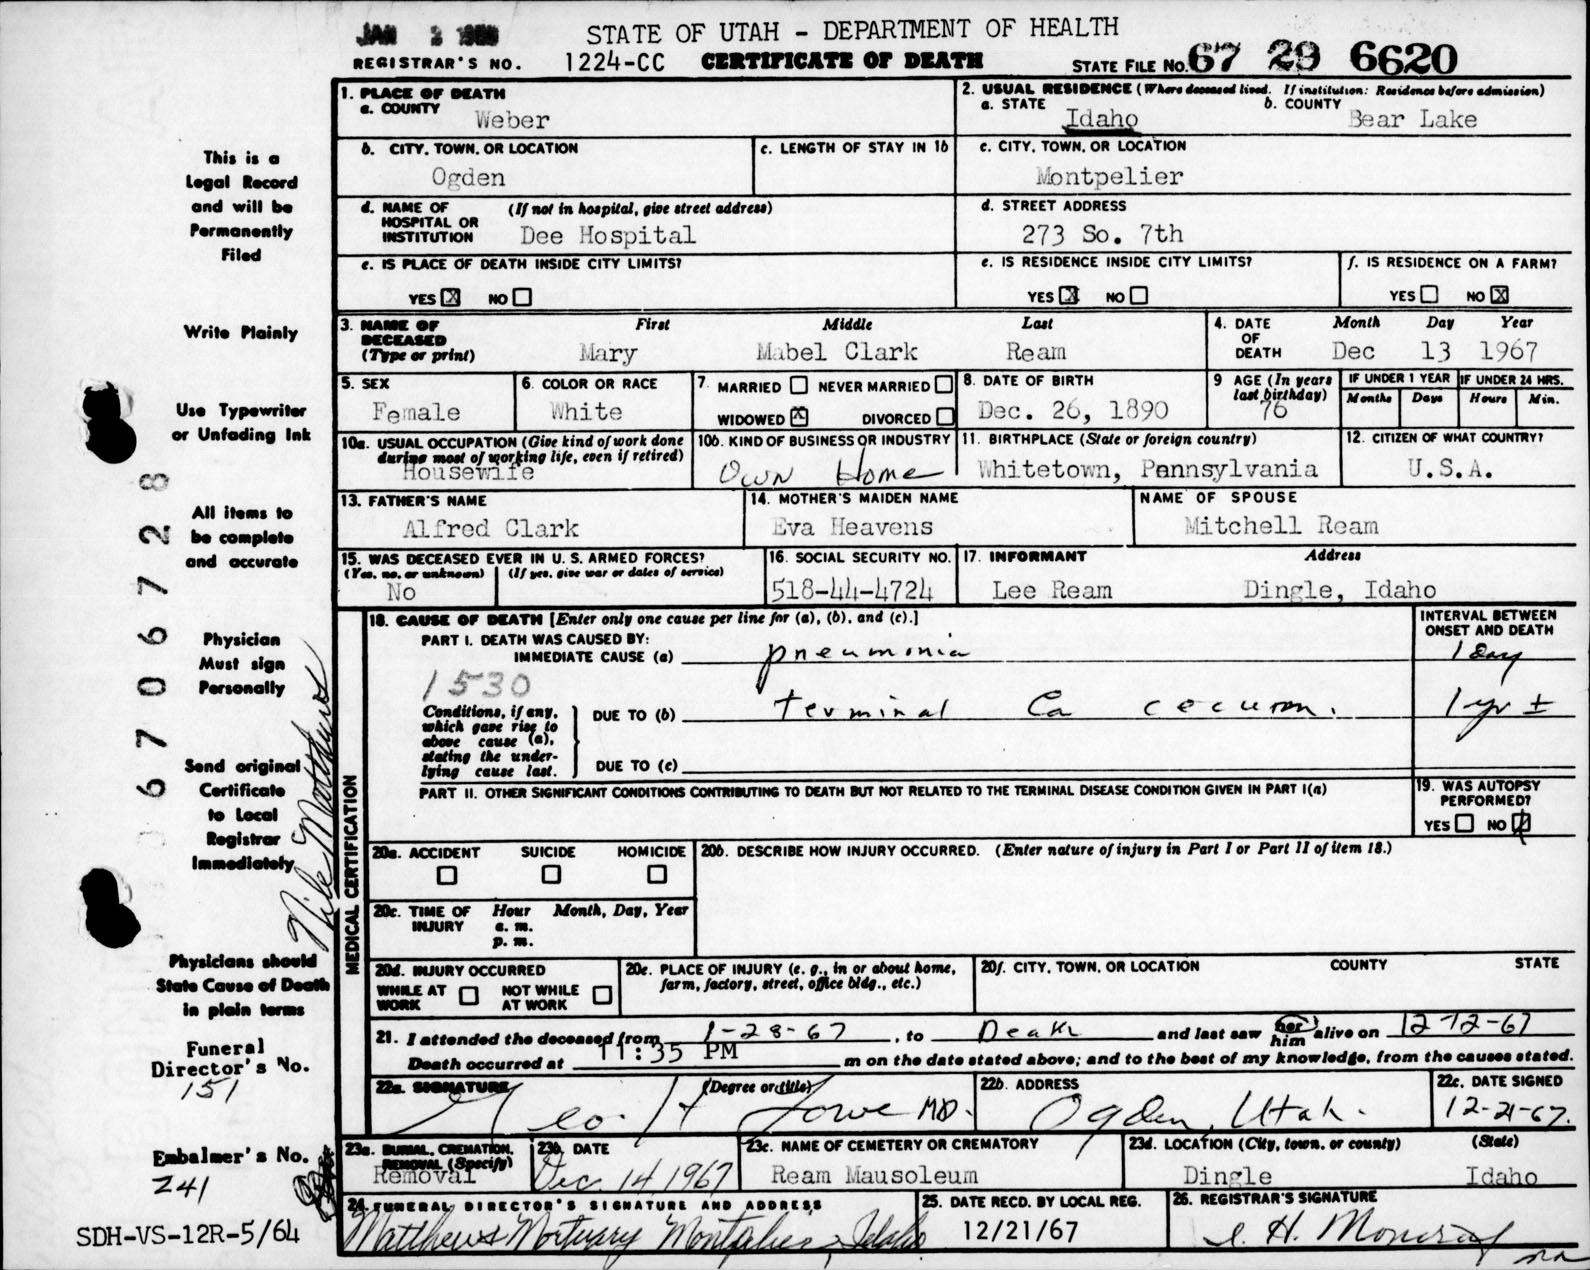 JAN 2 1968
STATE OF UTAH - DEPARTMENT OF HEALTH
REGISTRAR'S NO. 1224-CC CERTIFICATE OF DEATH STATE FILE NO. 67 29 6620
This is a
Legal Record
and will be
Permanently
Filed
Write Plainly
Use Typewriter
or Unfading Ink
All items to
be complete
and accurate
Physician
Must sign
Personally
Send original
Certificate
to Local
Registrar
Immediately
Physicians should
State Cause of Death
in plain terms
Funeral
Director's No.
151
Embalmer's No.
241
SDH-VS-12R-5/64
67067728
Nile Matthews
1. PLACE OF DEATH
a. COUNTY
Weber
2. USUAL RESIDENCE (Where deceased lived. If institution: Residence before admission)
a. STATE b. COUNTY
Idaho Bear Lake
b. CITY, TOWN, OR LOCATION
Ogden
c. LENGTH OF STAY IN 1b
c. CITY, TOWN, OR LOCATION
Montpelier
d. NAME OF HOSPITAL OR INSTITUTION (If not in hospital, give street address)
Dee Hospital
d. STREET ADDRESS
273 So. 7th
e. IS PLACE OF DEATH INSIDE CITY LIMITS?
YES X NO
e. IS RESIDENCE INSIDE CITY LIMITS?
YES X NO
f. IS RESIDENCE ON A FARM?
YES NO X
3. NAME OF DECEASED (Type or print) First Middle Last
Mary Mabel Clark Ream
4. DATE OF DEATH Month Day Year
Dec 13 1967
5. SEX
Female
6. COLOR OR RACE
White
7. MARRIED NEVER MARRIED
WIDOWED X DIVORCED
8. DATE OF BIRTH
Dec. 26, 1890
9 AGE (In years last birthday)
76
IF UNDER 1 YEAR
Months Days
IF UNDER 24 HRS.
Hours Min.
10a. USUAL OCCUPATION (Give kind of work done
during most of working life, even if retired)
Housewife
10b. KIND OF BUSINESS OR INDUSTRY
Own Home
11. BIRTHPLACE (State or foreign country)
Whitetown, Pennsylvania
12. CITIZEN OF WHAT COUNTRY?
U.S.A.
13. FATHER'S NAME
Alfred Clark
14. MOTHER'S MAIDEN NAME
Eva Heavens
NAME OF SPOUSE
Mitchell Ream
15. WAS DECEASED EVER IN U. S. ARMED FORCES?
(Yes, no, or unknown) (If yes, give war or dates of service)
No
16. SOCIAL SECURITY NO.
518-44-4724
17. INFORMANT Address
Lee Ream Dingle, Idaho
MEDICAL CERTIFICATION
18. CAUSE OF DEATH [Enter only one cause per line for (a), (b), and (c).]
INTERVAL BETWEEN
ONSET AND DEATH
PART I. DEATH WAS CAUSED BY:
IMMEDIATE CAUSE (a) pneumonia 1 day
1530
Conditions, if any,
which gave rise to
above cause (a),
stating the under-
lying cause last.
DUE TO (b) terminal Ca cecum. 1 yr ±
DUE TO (c)
PART II. OTHER SIGNIFICANT CONDITIONS CONTRIBUTING TO DEATH BUT NOT RELATED TO THE TERMINAL DISEASE CONDITION GIVEN IN PART I(a)
19. WAS AUTOPSY
PERFORMED?
YES NO X
20a. ACCIDENT SUICIDE HOMICIDE
20b. DESCRIBE HOW INJURY OCCURRED. (Enter nature of injury in Part I or Part II of item 18.)
20c. TIME OF INJURY Hour Month, Day, Year
a. m.
p. m.
20d. INJURY OCCURRED
WHILE AT WORK NOT WHILE AT WORK
20e. PLACE OF INJURY (e. g., in or about home,
farm, factory, street, office bldg., etc.)
20f. CITY, TOWN, OR LOCATION COUNTY STATE
21. I attended the deceased from 1-28-67, to Death and last saw her him alive on 12-12-67
Death occurred at 11:35 PM m on the date stated above; and to the best of my knowledge, from the causes stated.
22a. SIGNATURE (Degree or title)
Geo. H Lowe MD.
22b. ADDRESS
Ogden, Utah.
22c. DATE SIGNED
12-21-67.
23a. BURIAL, CREMATION,
REMOVAL (Specify)
Removal
23b DATE
Dec 14, 1967
23c. NAME OF CEMETERY OR CREMATORY
Ream Mausoleum
23d. LOCATION (City, town, or county) (State)
Dingle Idaho
24. FUNERAL DIRECTOR'S SIGNATURE AND ADDRESS
Matthews Mortuary Montpelier, Idaho
25. DATE RECD. BY LOCAL REG.
12/21/67
26. REGISTRAR'S SIGNATURE